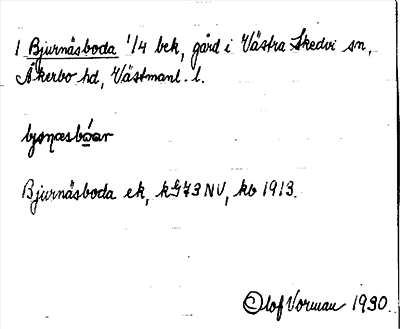 1 Bjurnäsboda 1/4 bek, gård i Västra Skedvi sn,
Åkerbo hd, Västmanl. l.
Bjurnäsboda ek, kbl 73 NV, kb 1913.
Olof Vorman 1930